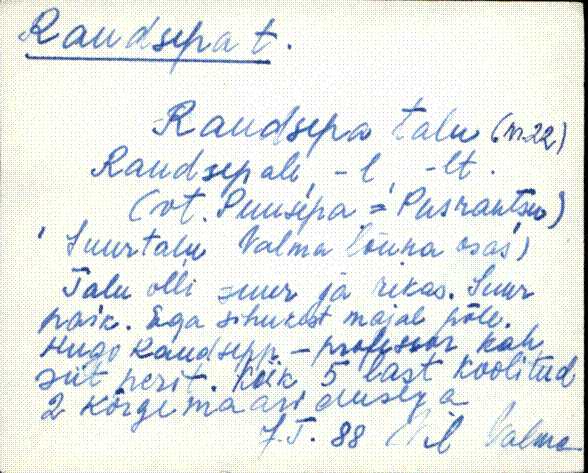 Raudsepa t.
Raudsepa talu (n. 22)
Raudsepale, -l, -lt.
(vt. Puusepa = Pusrantsu)
(Suurtalu Valma lõuna osas)
Talu olli suur ja rikas. Suur
paik. Ega sihukest majal põle.
Hugo Raudsepp - professor kah
siit perit. Kõik 5 last koolitud
2 kõrgema aridusega
J.T. 88 Vil Valma